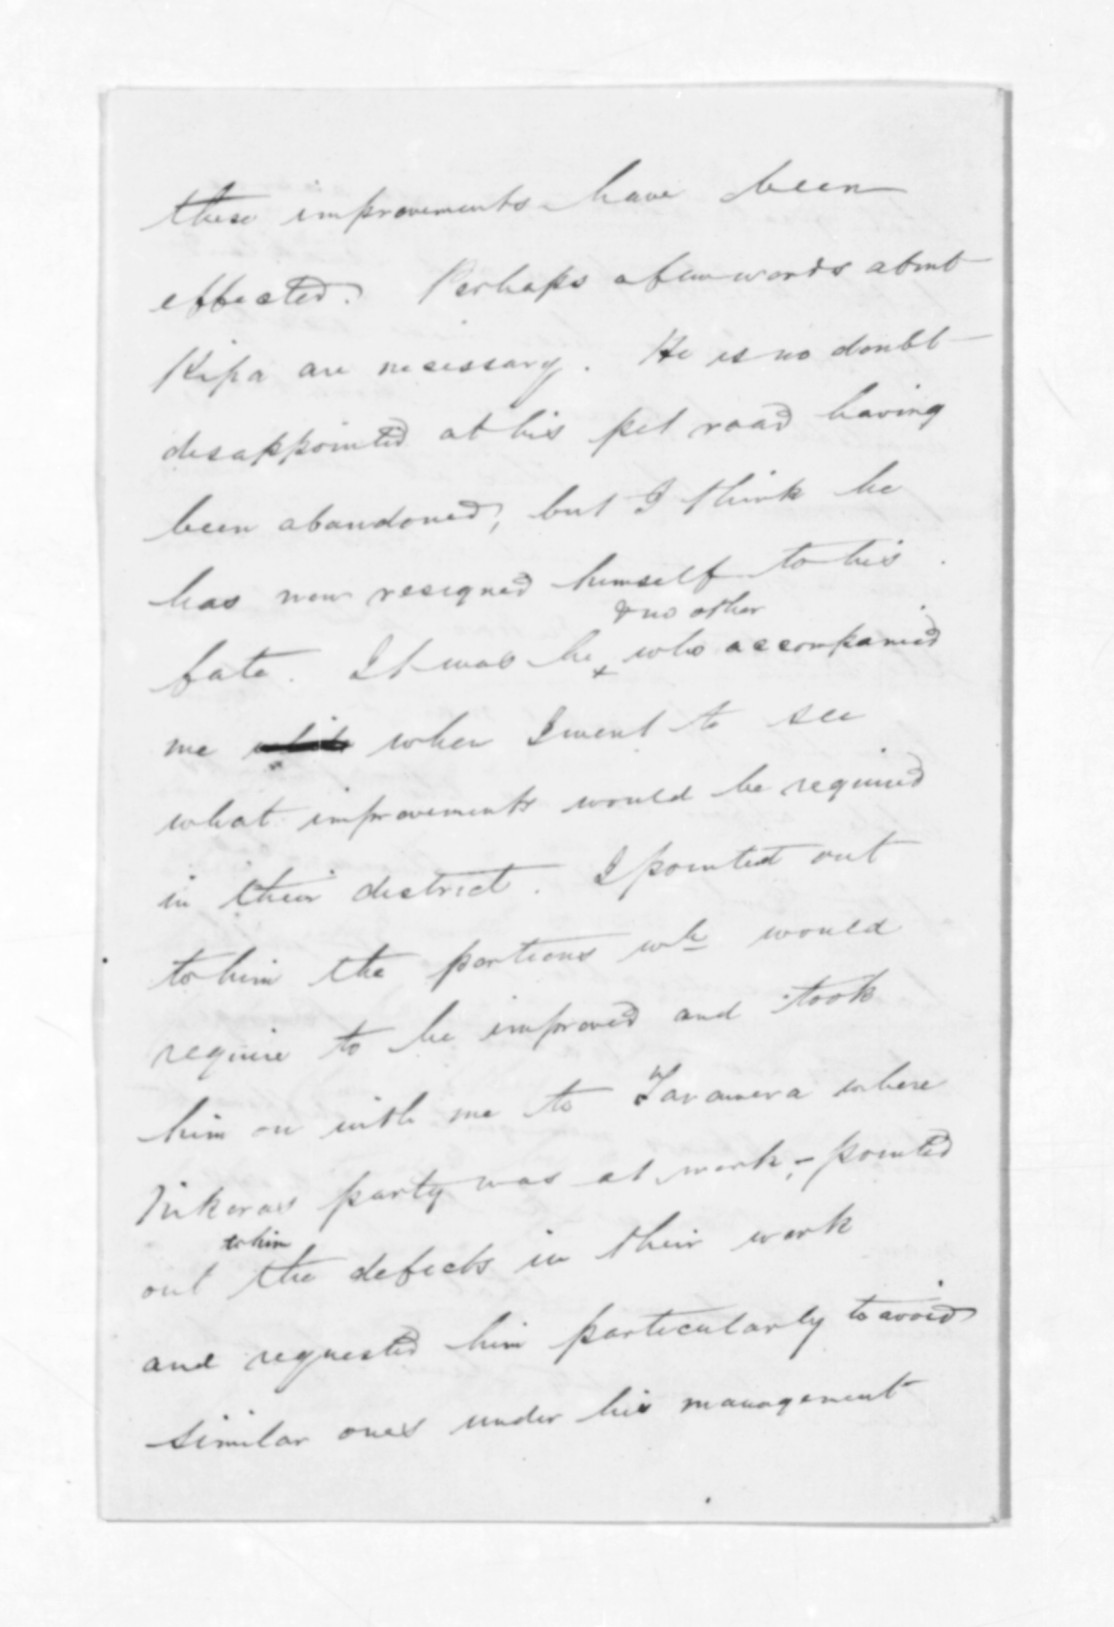 these improvements have been
effected. Perhaps a few words about
Kipa are necessary. He is no doubt
disappointed at his pet road having
been abandoned, but I think he
has now resigned himself to his
& no other
fate. It was he x who accompanied
me when I went to see
what improvements would be required
in their district. I pointed out
to him the portions wh would
require to be improved and took
him on with me to Tarawera where
party was at work, - pointed
to him
out the defects in their work
and requested him particularly to avoid
similar ones under his management